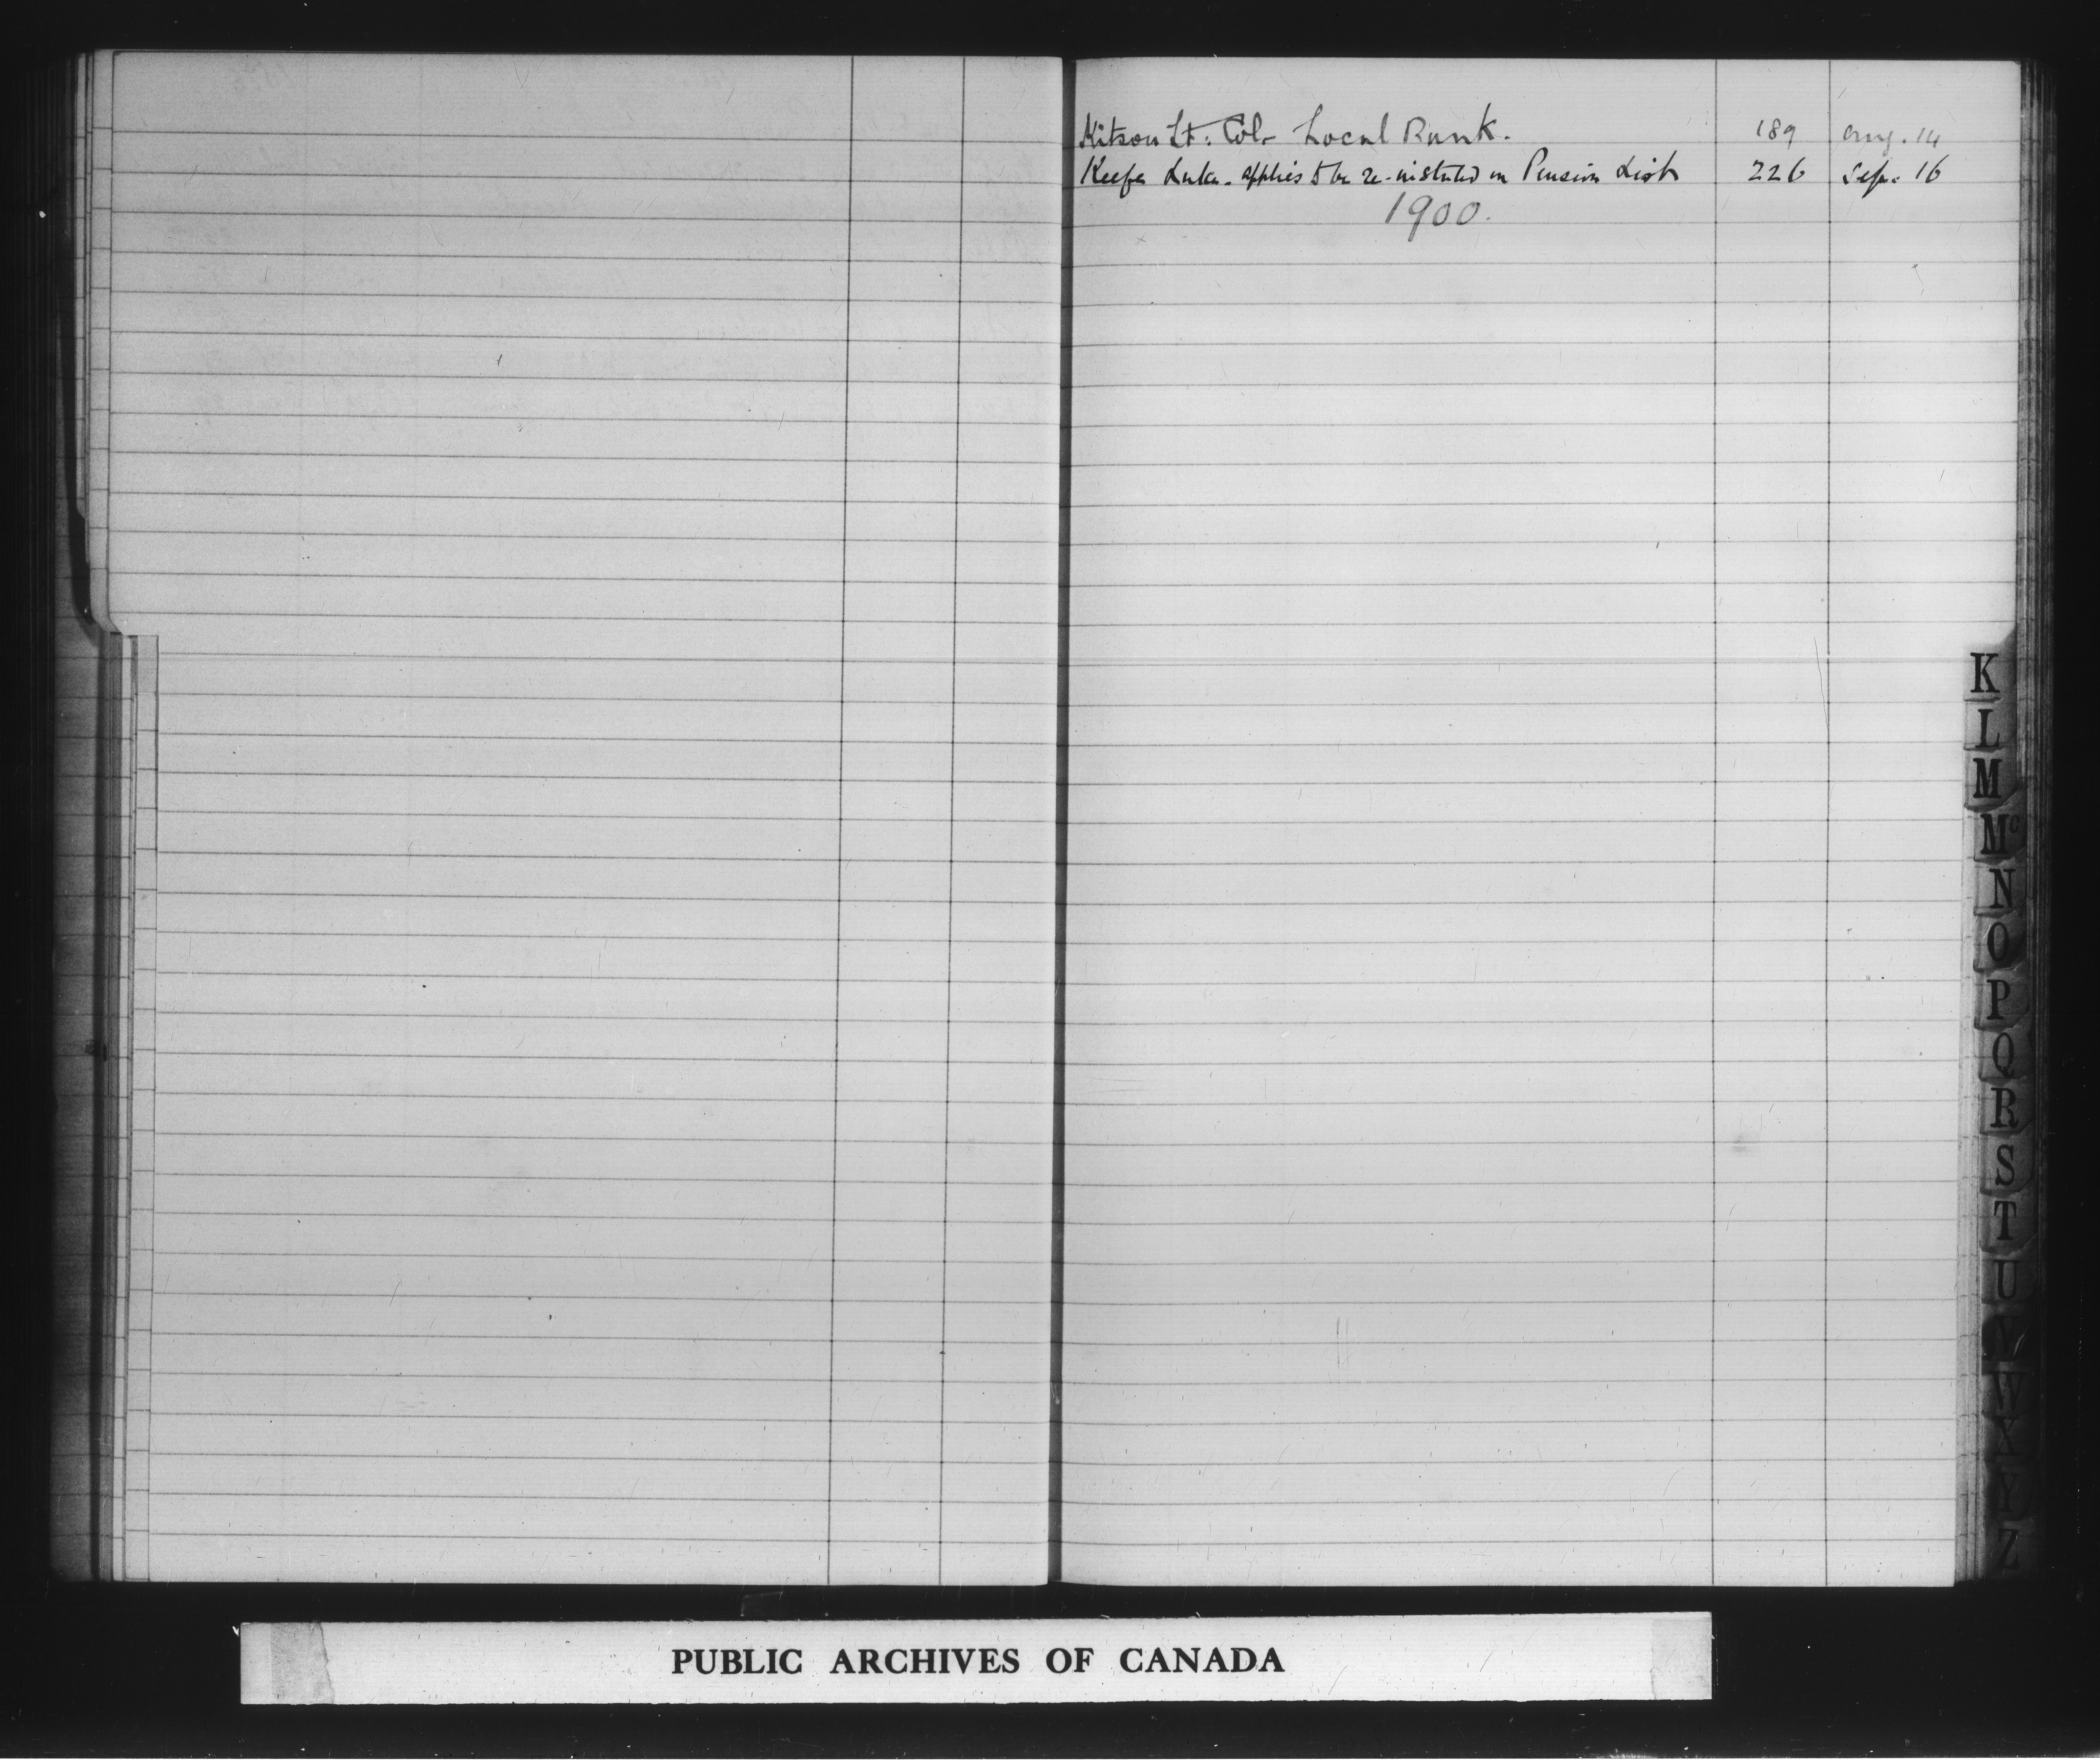 Kitson Lt: Col- Local Rank. 189 Aug. 14
Keefe Luke. applies to be re-instated on Pension List 226 Sep. 16
1900.
K
L
M
Mc
N
O
P
Q
R
S
T
U
V
W
X
Y
Z
PUBLIC ARCHIVES OF CANADA